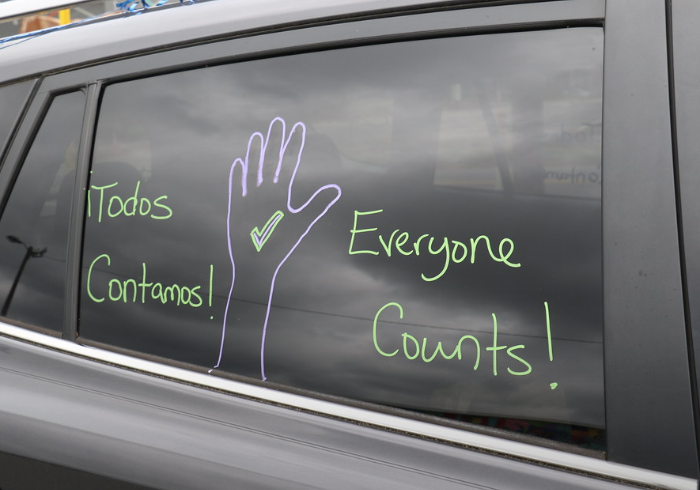 ¡Todos
Contamos!
Everyone
Counts!